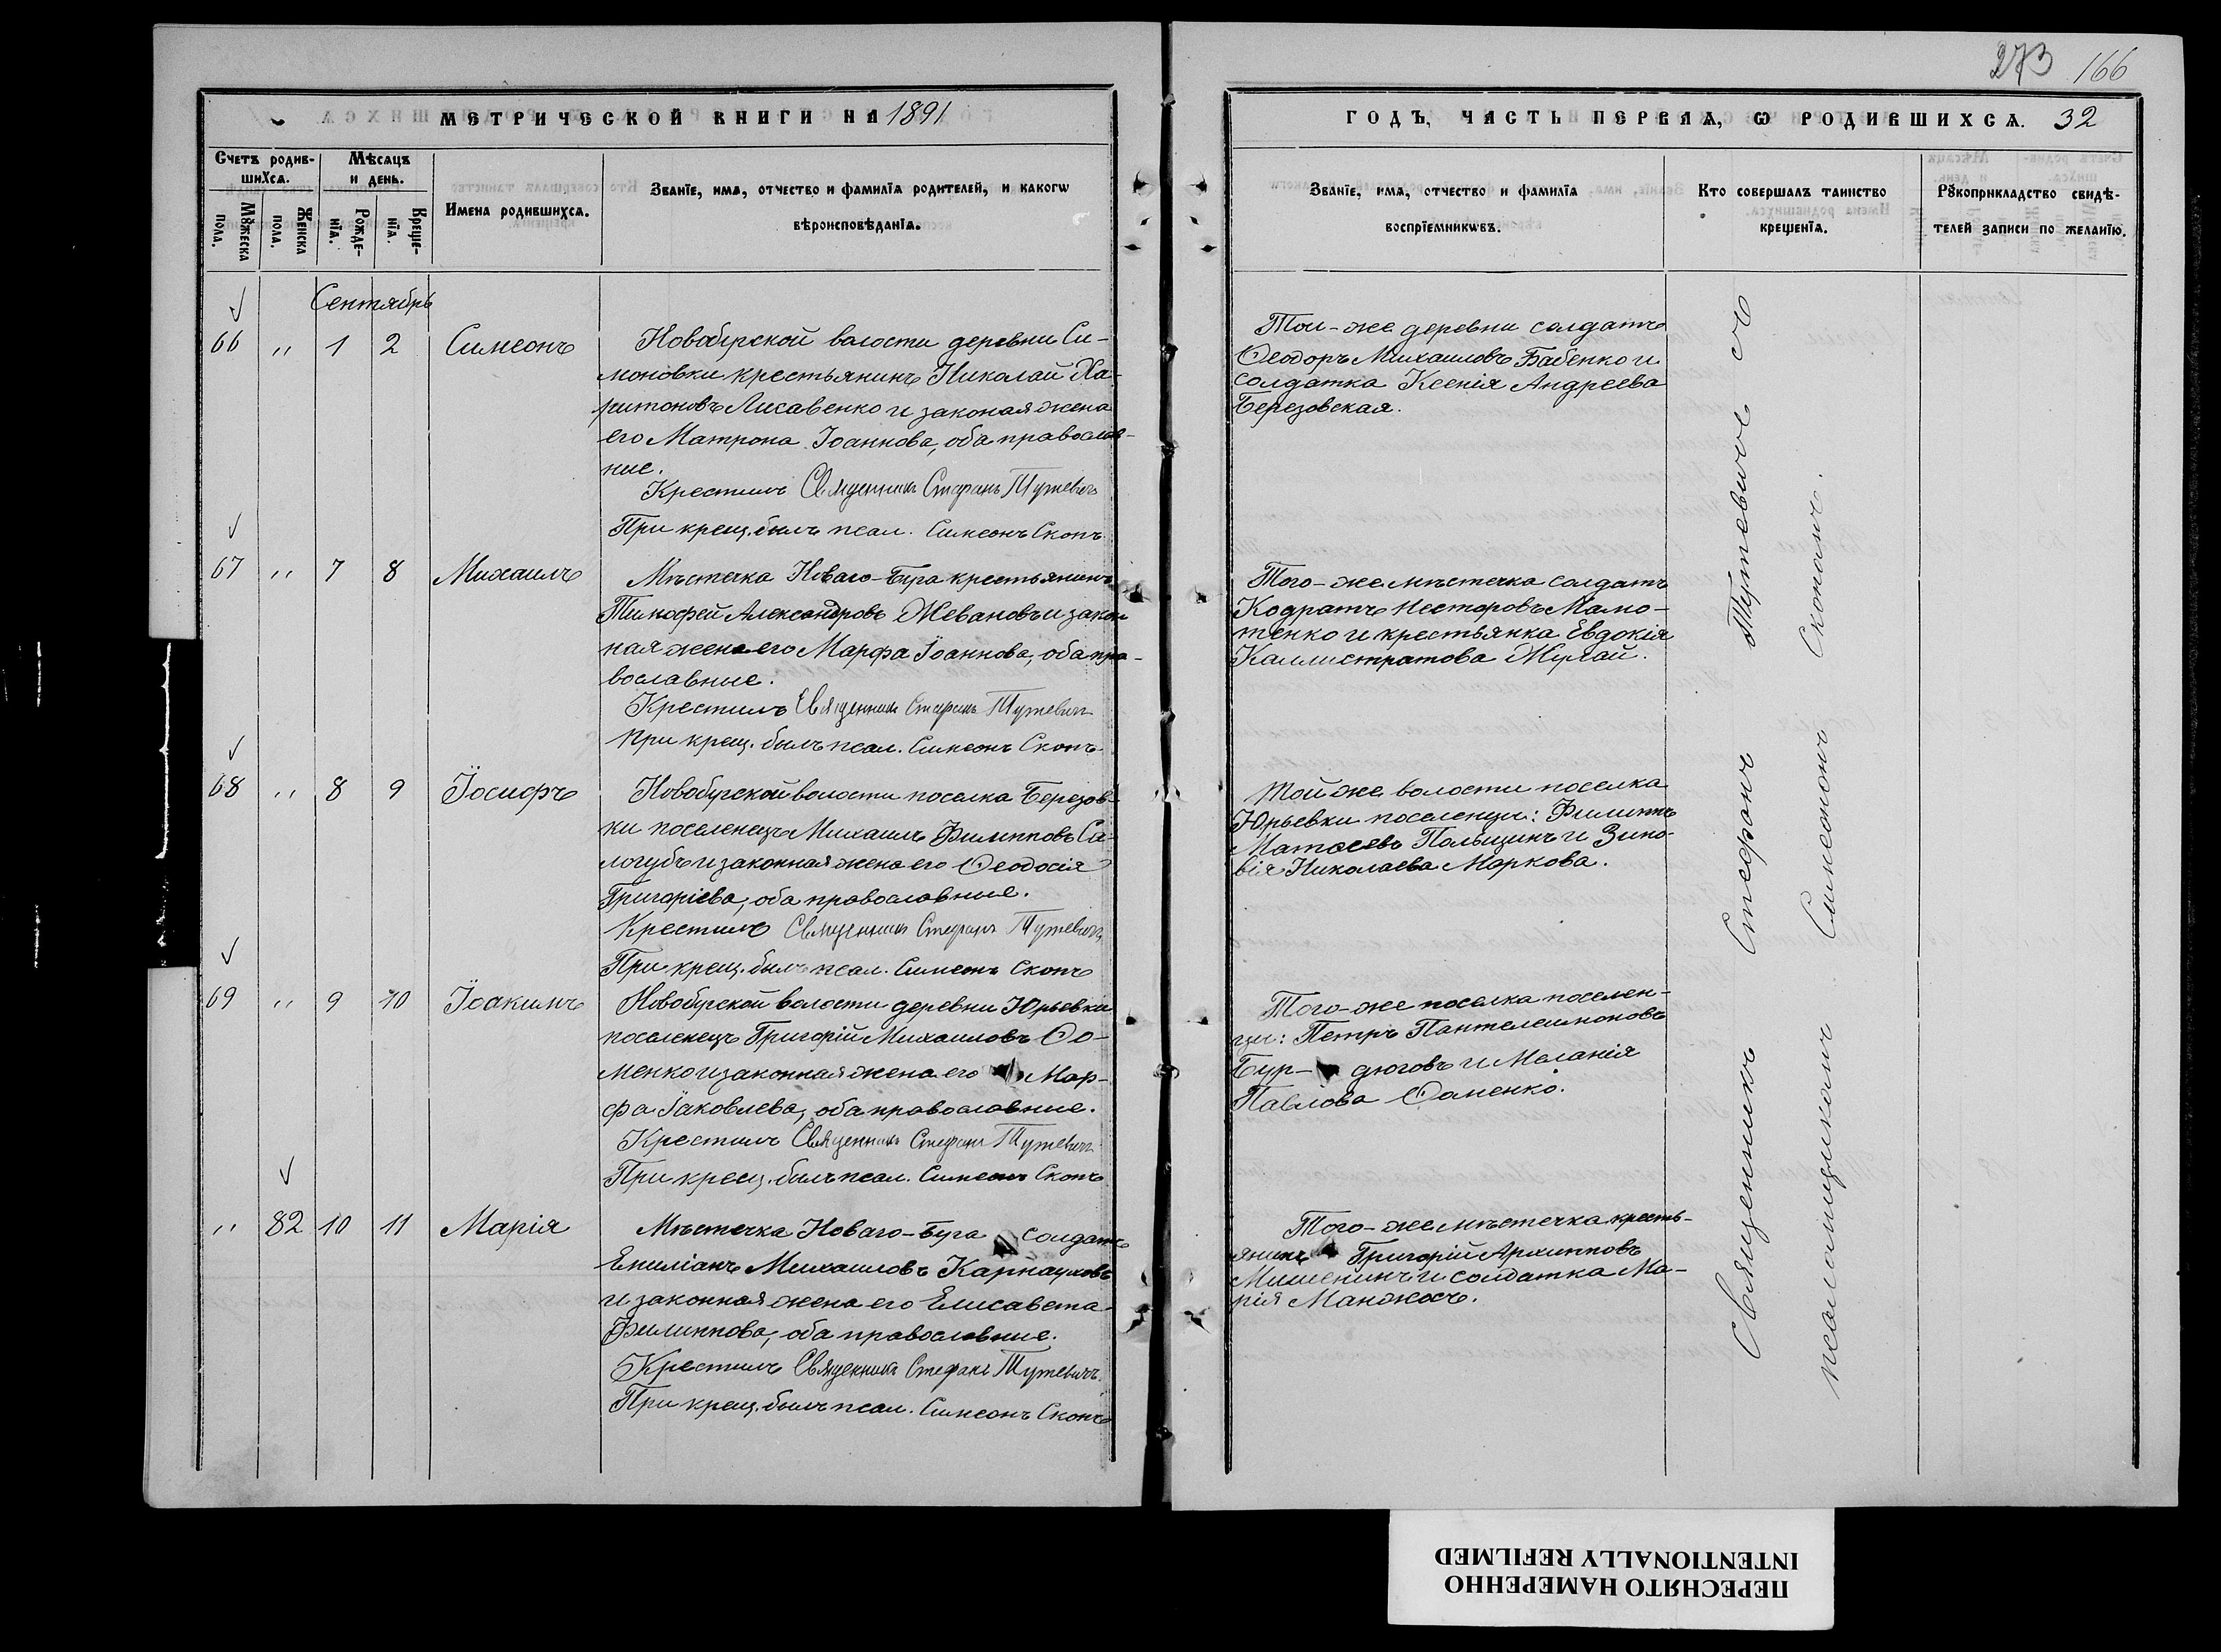 273 166
МЕТРИЧЕСКОЙ КНИГИ НА 1891
Счетъ родив-
шихся.
Мѣсяцъ
и день.
Мꙋжеска
пола.
Женска
пола.
Рожде-
нїя.
Креще-
нїя.
Имена родившихся.
Званїе, имя, отчество и фамилїа родителей, и какогѡ
вѣроисповѣданїа.
Сентябрь
66 " 1 2 Симеонъ
Новобугской волости деревни Си-
моновки крестьянинъ Николай Ха-
ритоновъ Лисавенко и законая жена
его Матрона Іоаннова, оба православ-
ные.
Крестилъ Священникъ Стефанъ Тутевичъ
При крещ. былъ псал. Симеонъ Скопъ
67 " 7 8 Михаилъ
Мѣстечка Новаго-Буга крестьянинъ
Тимофей Александровъ Жевановъ и закон
ная жена его Марфа Іоаннова, оба пра-
вославные.
Крестилъ Священникъ Стефанъ Тутевичъ
При крещ. былъ псал. Симеонъ Скопъ
68 " 8 9 Іосифъ
Новобугской волости поселка Березов-
ки поселенецъ Михаилъ Филипповъ Са-
логубъ и законная жена его Ѳеодосія
Григоріева, оба православные.
Крестилъ Священникъ Стефанъ Тутевичъ
При крещ. былъ псал. Симеонъ Скопъ
69 " 9 10 Іоакимъ
Новобугской волости деревни Юрьевки
поселенецъ Григорій Михаиловъ Ѳо-
менко и законная жена его Мар-
фа Іаковлева, оба православные.
Крестилъ Священникъ Стефанъ Тутевичъ
При крещ. былъ псал. Симеонъ Скопъ
" 82 10 11 Марія
Мѣстечка Новаго-Буга солдатъ
Емиліанъ Михаиловъ Карнауховъ
и законная жена его Елисавета
Филиппова, оба православные.
Крестилъ Священникъ Стефанъ Тутевичъ.
При крещ. былъ псал. Симеонъ Скопъ
ГОДЪ, ЧАСТЬ ПЕРВАЯ, Ѡ РОДИВШИХСЯ. 32
Званїе, имя, отчество и фамилїа
воспрїемникѡвъ.
Кто совершалъ таинство
крещенїя.
Рꙋкоприкладство свидѣ-
телей записи по желанїю.
Той-же деревни солдатъ
Ѳеодоръ Михаиловъ Бабенко и
солдатка Ксенія Андреева
Березовская.
Того-же мѣстечка солдатъ
Кодратъ Несторовъ Мамо-
тенко и крестьянка Евдокія
Каллистратова Жулай.
Той же волости поселка
Юрьевки поселенцы: Филиппъ
Матѳеевъ Польщинъ и Зино-
вія Николаева Маркова.
Того-же поселка поселен-
цы: Петръ Пантелеимоновъ
Бур- дюговъ и Меланія
Павлова Ѳоменко.
Того-же мѣстечка кресть-
янинъ Григорій Архипповъ
Мишенинъ и солдатка Ма-
рія Манжосъ.
Священникъ Стефанъ Тутевичъ съ
псаломщикомъ Симеономъ Скопомъ.
ПЕРЕСНЯТО НАМЕРЕННО
INTENTIONALLY REFILMED